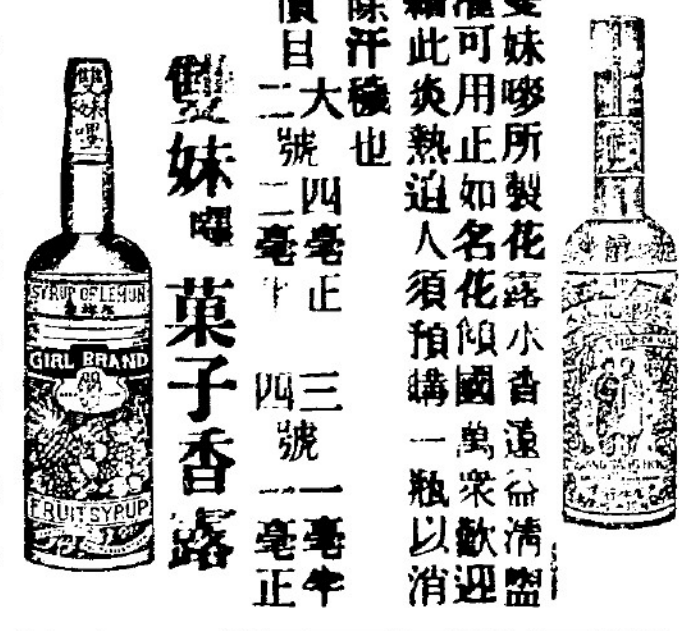 雙妹嘜所製花露水香遠益清盥
濯可用正如名花傾國萬衆歡迎
此炎熱迫人須預購一瓶以消
除汗穢也
價目
大號 四毫正 三號 一毫半
二號 二毫半 四號 一毫正
雙妹嘜 菓子香露
雙妹嘜
SYRUP OF LEMON
GIRL BRAND
FRUIT SYRUP